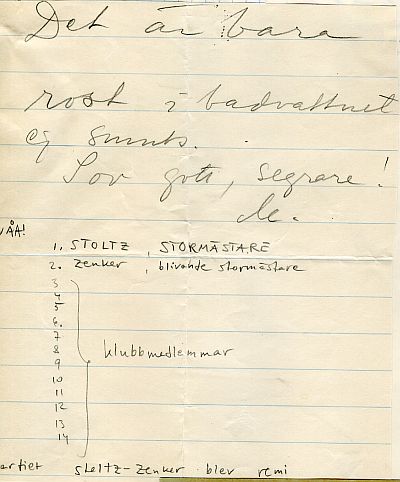 Det är bara
rost i badvattnet
ej smuts.
Sov gott, segrare!
VÅA!
1. STOLTZ, STORMÄSTARE
2. Zenker, blivande stormästare
3
4
5
6.
7
8
klubbmedlemmar
9
10
11
12
13
14
artiet Stoltz-Zenker blev remi